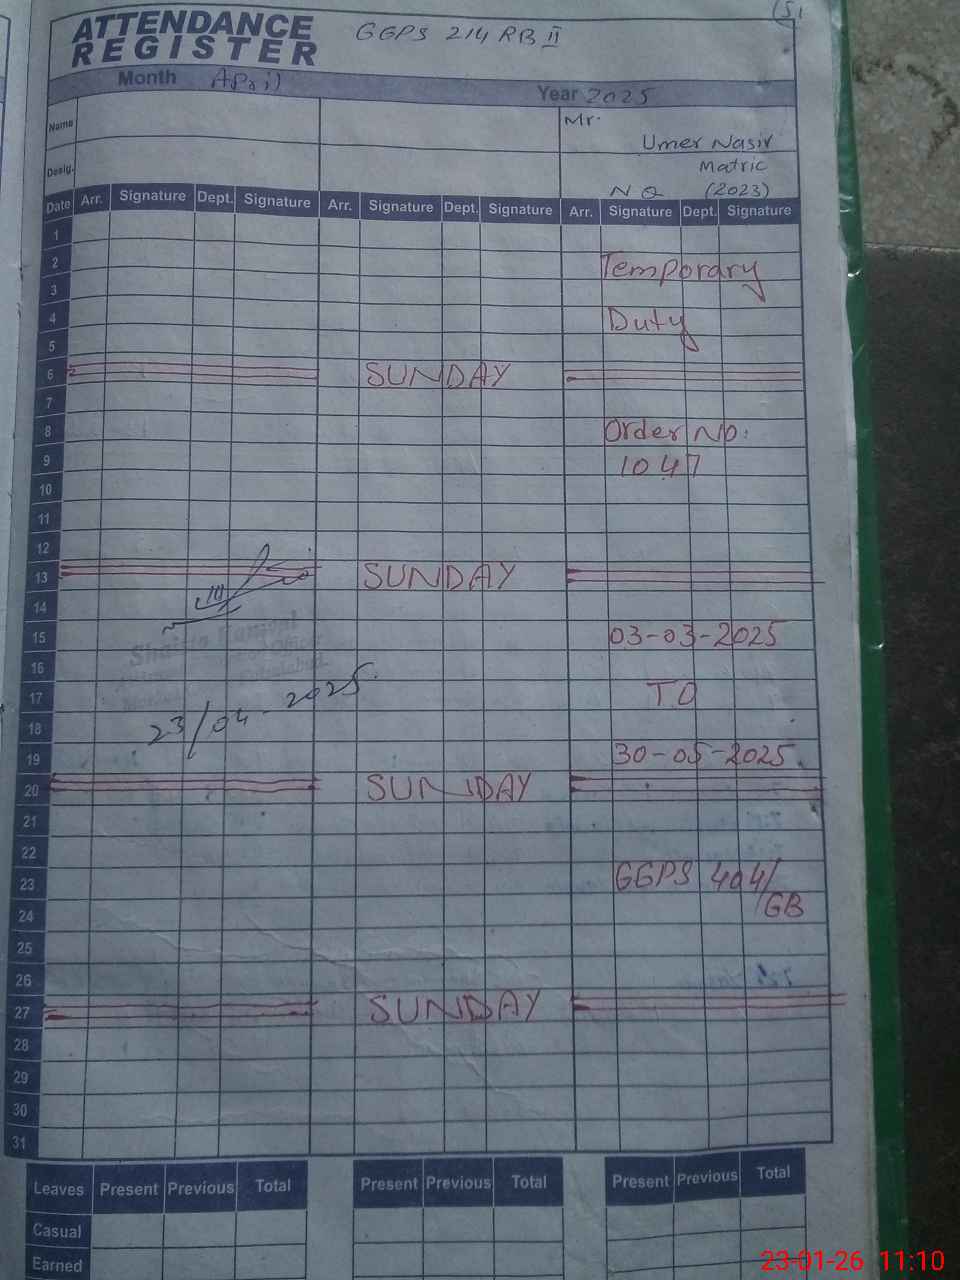 ATTENDANCE REGISTER
GGPS 214 RB II
Month April
Year 2025
Name
Mr. Umer Nasir
Desig.
Matric
NQ (2023)
Date Arr. Signature Dept. Signature Arr. Signature Dept. Signature Arr. Signature Dept. Signature
1
2 Temporary
3
4 Duty
5
6 SUNDAY
7
8 Order No:
9 1047
10
11
12
13 SUNDAY
14
15 03-03-2025
Shaista
16
17 TO
23/04-2025.
18
19 30-05-2025
20 SUNDAY
21
22
23 GGPS 404/
24 GB
25
26
27 SUNDAY
28
29
30
31
Leaves Present Previous Total Present Previous Total Present Previous Total
Casual
Earned
23-01-26 11:10